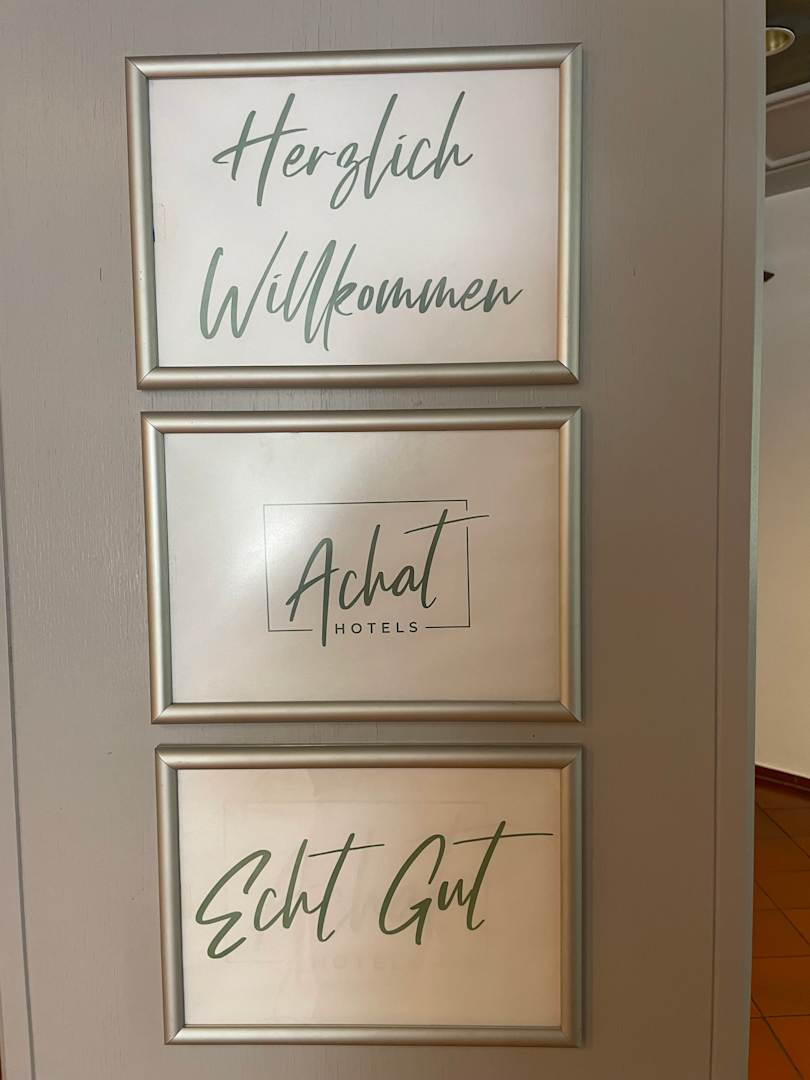 Herzlich
Willkommen
Achat
HOTELS
Echt Gut